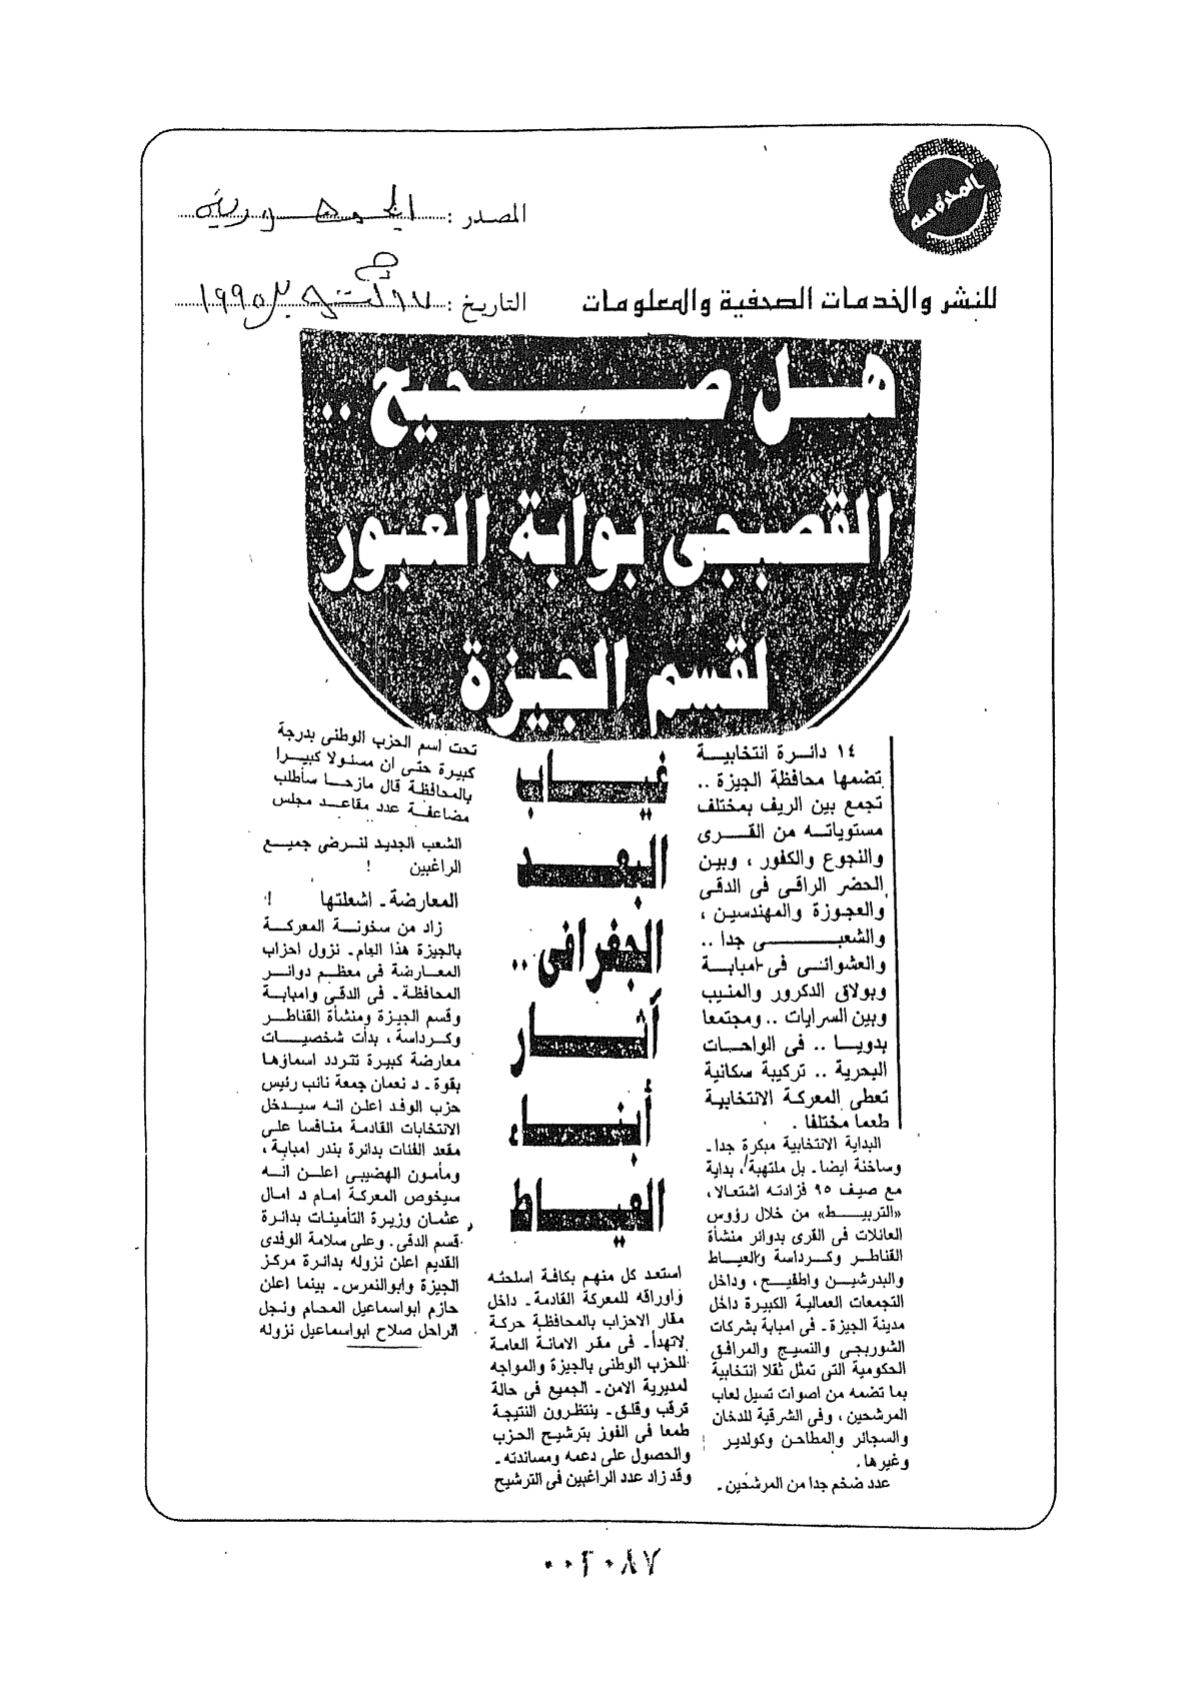 المحروسه
للنشر والخدمات الصحفية والمعلومات
المصدر : الجمهورية
التاريخ : ١٧ أكتوبر ١٩٩٥
هل صحيح ..
القصبجى بوابة العبور
لقسم الجيزة
١٤ دائرة انتخابية
تضمها محافظة الجيزة ..
تجمع بين الريف بمختلف
مستوياته من القرى
والنجوع والكفور ، وبين
الحضر الراقى فى الدقى
والعجوزة والمهندسين ،
والشعبى جدا ..
والعشوائى فى امبابة
وبولاق الدكرور والمنيب
وبين السرايات .. ومجتمعا
بدويا .. فى الواحات
البحرية .. تركيبة سكانية
تعطى المعركة الانتخابية
طعما مختلفا .
البداية الانتخابية مبكرة جدا ـ
وساخنة ايضا ـ بل ملتهبة ، بداية
مع صيف ٩٥ فزادته اشتعالا ،
«التربيط» من خلال رؤوس
العائلات فى القرى بدوائر منشأة
القناطر وكرداسة والعياط
والبدرشين واطفيح ، وداخل
التجمعات العمالية الكبيرة داخل
مدينة الجيزة ـ فى امبابة بشركات
الشوربجى والنسيج والمرافق
الحكومية التى تمثل ثقلا انتخابية
بما تضمه من اصوات تسيل لعاب
المرشحين ، وفى الشرقية للدخان
والسجائر والمطاحن وكولدير
وغيرها .
عدد ضخم جدا من المرشحين ـ
غياب
البعد
الجغرافى ..
آثار
أبناء
العياط
استعد كل منهم بكافة اسلحته
واوراقه للمعركة القادمة ـ داخل
مقار الاحزاب بالمحافظة حركة
لاتهدأ ـ فى مقر الامانة العامة
للحزب الوطنى بالجيزة والمواجه
لمديرية الامن ـ الجميع فى حالة
ترقب وقلق ـ ينتظرون النتيجة
طمعا فى الفوز بترشيح الحزب
والحصول على دعمه ومساندته ـ
وقد زاد عدد الراغبين فى الترشيح
تحت اسم الحزب الوطنى بدرجة
كبيرة حتى ان مسئولا كبيرا
بالمحافظة قال مازحا سأطلب
مضاعفة عدد مقاعد مجلس
الشعب الجديد لنرضى جميع
الراغبين !
المعارضة ـ اشعلتها !
زاد من سخونة المعركة
بالجيزة هذا العام ـ نزول احزاب
المعارضة فى معظم دوائر
المحافظة ـ فى الدقى وامبابة
وقسم الجيزة ومنشأة القناطر
وكرداسة ، بدأت شخصيات
معارضة كبيرة تتردد اسماؤها
بقوة ـ د نعمان جمعة نائب رئيس
حزب الوفد اعلن انه سيدخل
الانتخابات القادمة منافسا على
مقعد الفئات بدائرة بندر امبابة ،
ومأمون الهضيبى اعلن انه
سيخوض المعركة امام د امال
عثمان وزيرة التأمينات بدائرة
قسم الدقى ـ وعلى سلامة الوفدى
القديم اعلن نزوله بدائرة مركز
الجيزة وابوالنمرس ـ بينما اعلن
حازم ابواسماعيل المحام ونجل
الراحل صلاح ابواسماعيل نزوله
٠٠٢٠٨٧